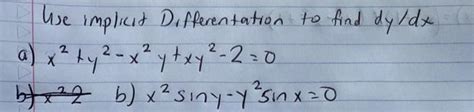 Use implicit Differentation to find dy/dx
a) x² + y² - x² y + xy² - 2 = 0
b) x² 2 b) x² sin y - y² sin x = 0